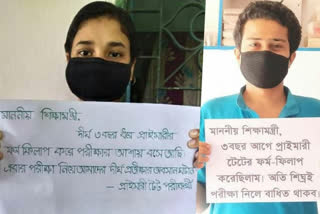 মাননীয় শিক্ষামন্ত্রী,
দীর্ঘ ৩ বছর ধরে প্রাইমারীর
ফর্ম ফিলাপ করে পরীক্ষার আশায় বসে আছি
এবার পরীক্ষা নিয়ে আমাদের দীর্ঘ প্রতীক্ষার অবসান ঘটান
– প্রাইমারী টেট পরীক্ষার্থী
মাননীয় শিক্ষামন্ত্রী,
৩বছর আগে প্রাইমারী
টেটের ফর্ম-ফিলাপ
করেছিলাম। অতি শিঘ্রই
পরীক্ষা নিলে বাধিত থাকব।